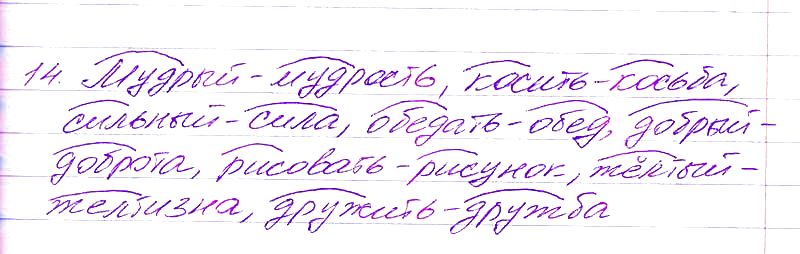 14. Мудрый - мудрость, косить - косьба,
сильный - сила, обедать - обед, добрый -
доброта, рисовать - рисунок, жёлтый -
желтизна, дружить - дружба